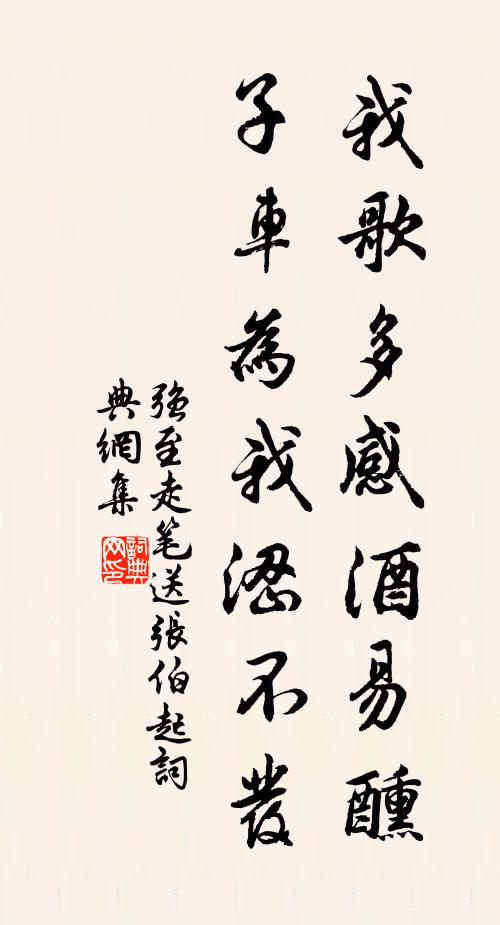 我歌多感酒易醺
子車為我澀不發
強至走笔送張伯起詞
典網集
詞典
网印